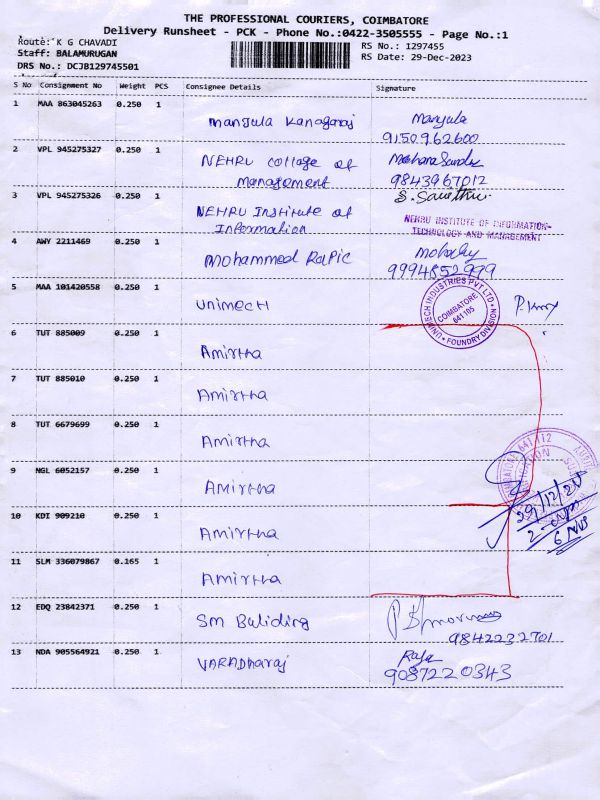 THE PROFESSIONAL COURIERS, COIMBATORE
Delivery Runsheet - PCK - Phone No.:0422-3505555 - Page No.:1
Route: K G CHAVADI
RS No.: 1297455
Staff: BALAMURUGAN
RS Date: 29-Dec-2023
DRS No.: DCJB129745501
S No Consignment No Weight PCS Consignee Details Signature
1 MAA 863045263 0.250 1 Manjula Kanagaraj Manjula
9150962600
2 VPL 945275327 0.250 1 NEHRU College of
Management
9843967012
3 VPL 945275326 0.250 1 NEHRU Institute of
Information
NEHRU INSTITUTE OF INFORMATION-
TECHNOLOGY AND MANAGEMENT
4 AWY 2211469 0.250 1 Mohammed Rafic
9994852999
5 MAA 101420558 0.250 1 Unimech
UNIMECH INDUSTRIES PVT LTD
COIMBATORE
641 105
FOUNDRY DIVISION
6 TUT 885009 0.250 1 Amirtha
7 TUT 885010 0.250 1 Amirtha
8 TUT 6679699 0.250 1 Amirtha
641 112
9 NGL 6052157 0.250 1 Amirtha
29/12/23
10 KDI 909210 0.250 1 Amirtha
11 SLM 336079867 0.165 1 Amirtha
12 EDQ 23842371 0.250 1 Sm Buliding
9842232701
13 NDA 905564921 0.250 1 Varadharaj Raja
9087220343